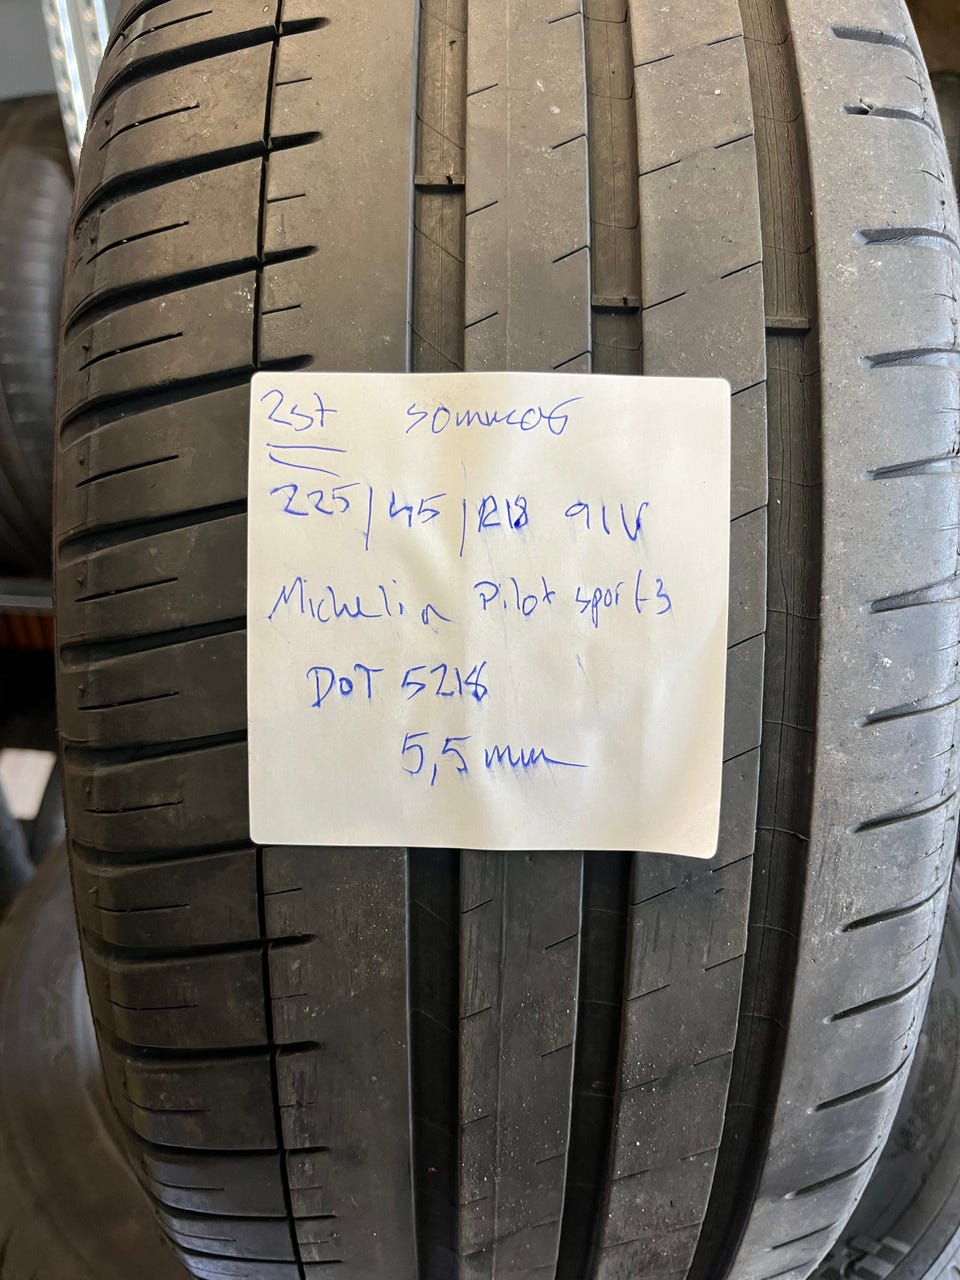 2st sommar
225/45/R18 91V
Michelin Pilot sport3
DOT 5218
5,5 mm